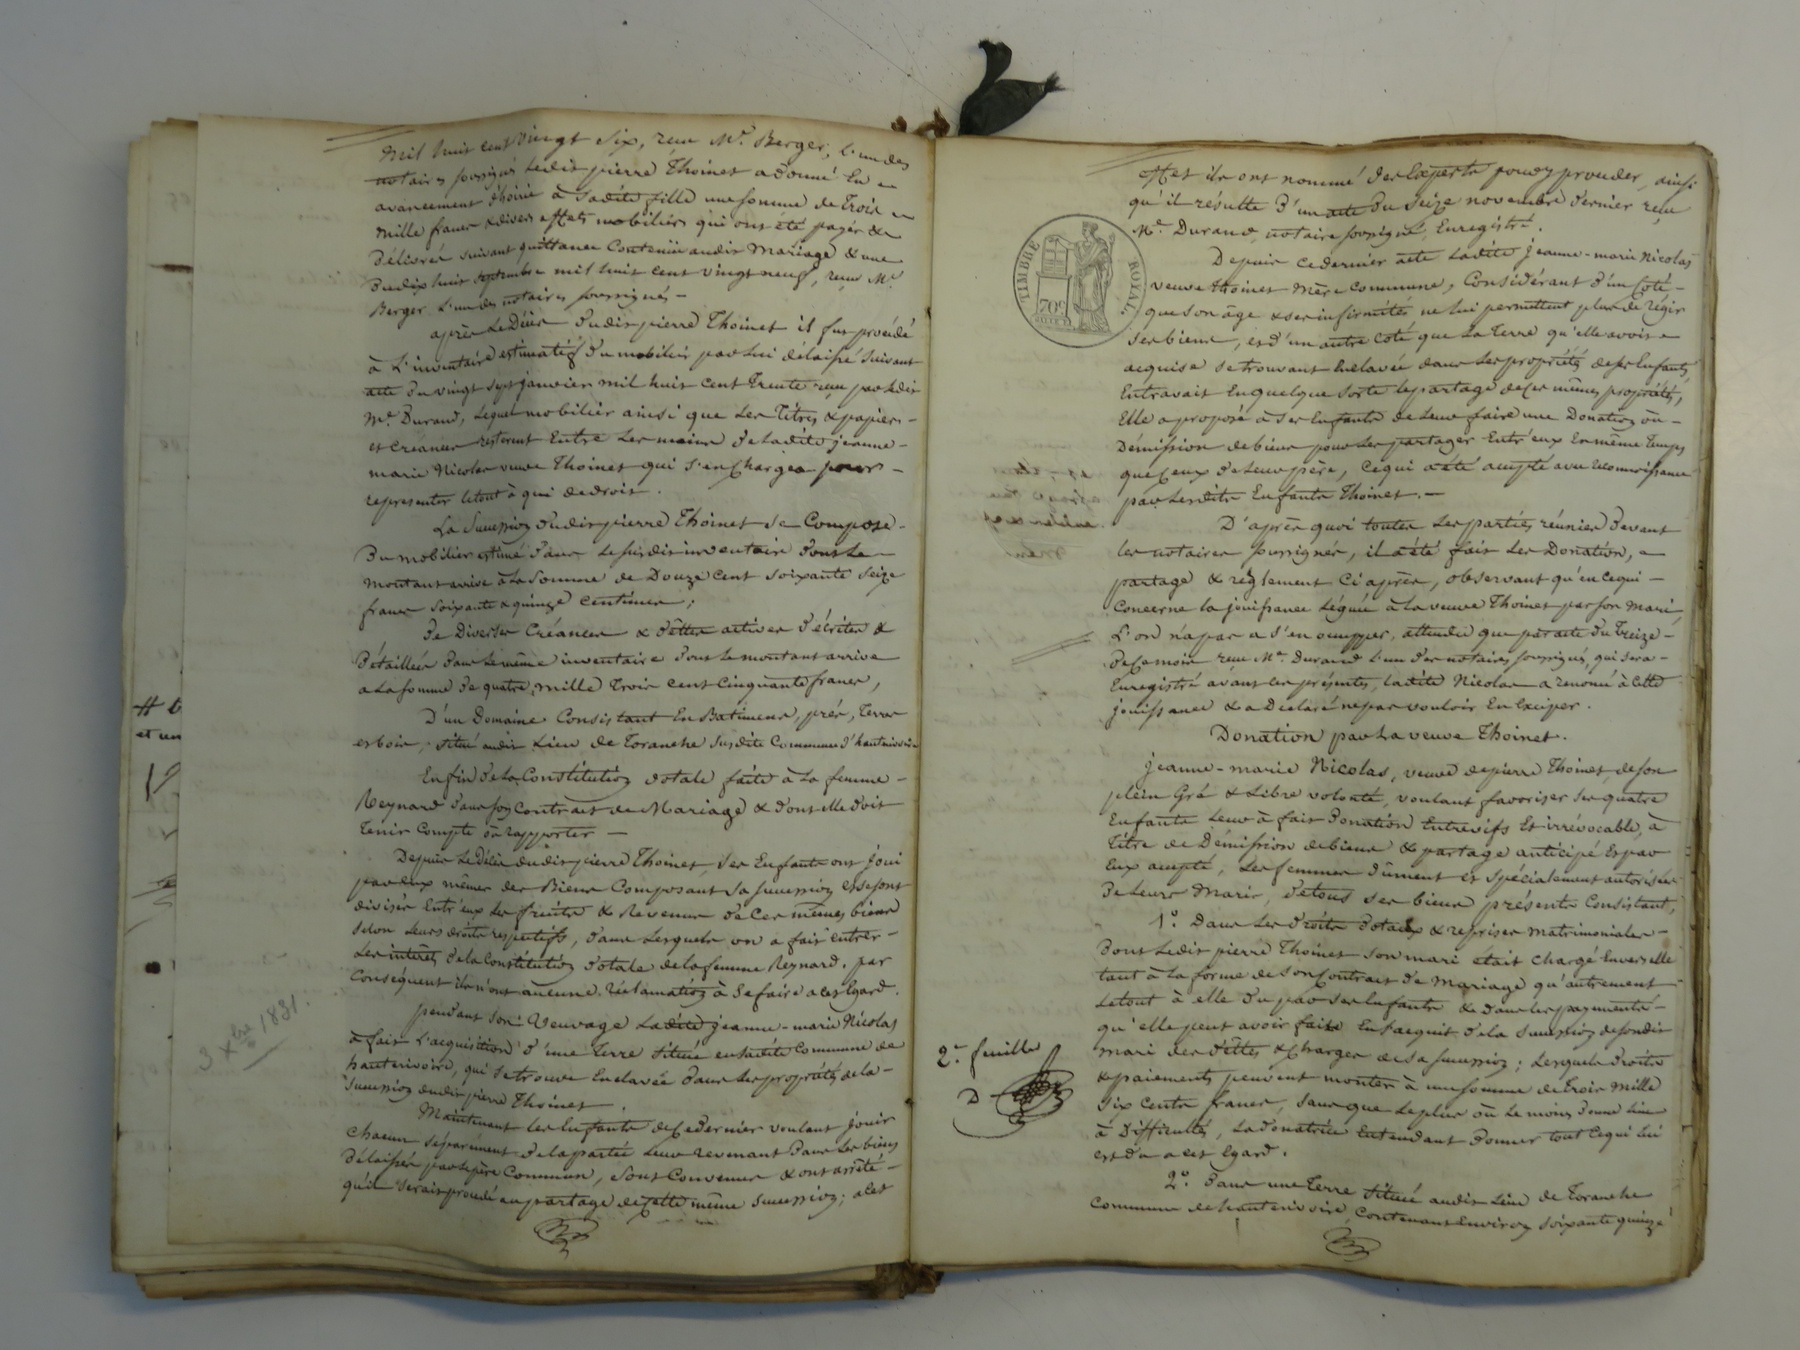 mil huit cent vingt six, reçu Mᵉ. Berger, l'un des
notaires soussignés ledit pierre Thoinet a donné En
avancement d'hoirie à Sadite fille une somme de Trois
mille francs & divers effets mobiliers qui ont été payés &
Délivrés suivant quittance Contenüe audit Mariage & une
Du dix huit septembre mil huit cent vingt neuf, reçue Mᵉ
Berger L'un des notaires soussignés -
après Le Décès dudit pierre Thoinet il fut procédé
à L'inventaire estimatif du mobilier par lui délaissé suivant
acte du vingt sept janvier mil huit cent Trente reçu par ledit
Mᵉ Durand, Lequel mobilier ainsi que Les Titres & papiers -
et Créances resterent Entre Les mains de Ladite jeanne -
marie Nicolas veuve Thoinet qui s'en Chargea pour -
representer letout à qui de droit.
La Succession dudit pierre Thoinet Se Compose -
Du mobilier estimé dans Le susdit inventaire dont Le
montant arrive à La Somme de Douze Cent soixante seize
francs soixante & quinze centimes;
De Diverses Créances & dêttes actives décrites &
Détaillées dans Le même inventaire dont Le montant arrive
a La somme de quatre mille Trois cent Cinquante francs,
D'un Domaine Consistant En Batimens, prés, Terres
et bois, situé audit Lieu de Toranche susdite Commune d'hauterivoire
Enfin de La Constitution dotale faite à La femme -
Reynard dans son Contrat de Mariage & dont elle doit
Tenir Compte ou rapporter -
Depuis Le Décès dudit pierre Thoinet, ses Enfants ont joui
par eux mêmes des Biens Composant sa succession et se sont
divisés Entr'eux Les fruits & Revenus de Ces mêmes biens
selon Leurs droits respectifs, dans Lesquels on a fait entrer -
Les intérêts de La Constitution dotale de la femme Reynard. par
Conséquent ils n'ont aucune réclamation à Se faire a cet Egard.
pendant son Veuvage Ladite jeanne-marie Nicolas
à fait L'acquisition d'une Terre située en sadite Commune de
hauterivoire, qui se trouve Enclavée dans Les propriétés de la -
succession dudit pierre Thoinet.
Maintenant Les Enfants de Ce dernier voulant jouir
Chacun séparément de la partie Leur revenant dans Les biens
Délaissés par Le père Commun, sont Convenus & ont arrêté -
qu'il serait procédé au partage de Cette même succession; a cet
3 Xbre 1831.
# 
et un
TIMBRE ROYAL
70ᶜ
effet ils ont nommé des Experts pour y procéder, ainsi
qu'il résulte d'un acte du seize novembre dernier reçu
Mᵉ. Durand, notaire soussigné, Enregistré.
Depuis Ce dernier acte Ladite jeanne-marie Nicolas
veuve thoinet mère Commune, Considérant d'un Coté -
que son âge & ses infirmités ne lui permettent plus de régir
ses biens, et d'un autre coté que La Terre qu'elle avoit
acquise se trouvant Enclavée dans Les propriétés de ses Enfants
Entravait En quelque sorte le partage de Ces mêmes propriétés,
Elle a proposé à ses Enfants de Leur faire une Donation ou -
Démission de biens pour Les partager Entr'eux En même Temps
que Ceux de Leur père, Ce qui a été accepté avec reconnaissance
par Lesdits Enfants Thoinet. -
D'après quoi toutes Les parties réunies Devant
Les notaires soussignés, il a été fait Les Donation,
partage & règlement Ci après, observant qu'en Ce qui -
Concerne la jouissance Léguée à La veuve Thoinet par son Mari
L'on n'a pas a s'en occupper, attendu que par acte du Treize -
de Ce mois reçu Mᵉ. Durand L'un des notaires soussignés, qui sera -
Enregistré avant Les présentes, Ladite Nicolas a renoncé à Cette
jouissance & a Déclaré ne pas vouloir En Exciper.
Donation par La veuve Thoinet.
jeanne-marie Nicolas, veuve de pierre Thoinet, de son
plein Gré & Libre volonté, voulant favoriser ses quatre
Enfants Leur à fait Donation Entrevifs Et irrévocable, à
Titre de Démission de biens & partage anticipé Et par
Eux accepté, Les femmes dûment et spécialement autorisées
de Leurs Maris, de tous ses biens présents Consistant,
1º. Dans Les droits dotaux & reprises matrimoniales -
Dont Ledit pierre Thoinet son mari était chargé Envers elle
tant à La forme de son Contrat de Mariage qu'autrement
Letout à elle du par ses Enfants & dans les payments -
qu'elle peut avoir faits En l'acquit de la succession de sondit
mari des dêttes & Charges de Sa succession; Lesquels droits
& paiements peuvent monter à une somme de Trois Mille
six Cents francs, sans que Le plus ou Le moins donne Lieu
à Difficultés, La donatrice Entendant donner tout Ce qui lui
est dû a cet Egard.
2º. Dans une Terre située audit Lieu de Toranche
Commune de hauterivoire, Contenant Environ soixante quinze
2ᵉ. feuille
D